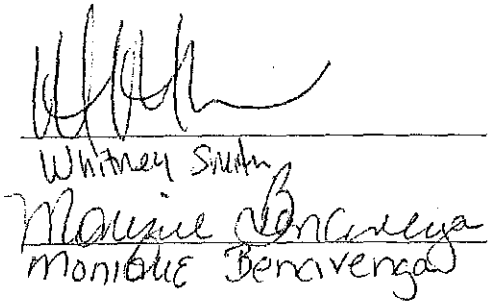 Whitney Smith
Monique Bencivenga
Monique Bencivenga